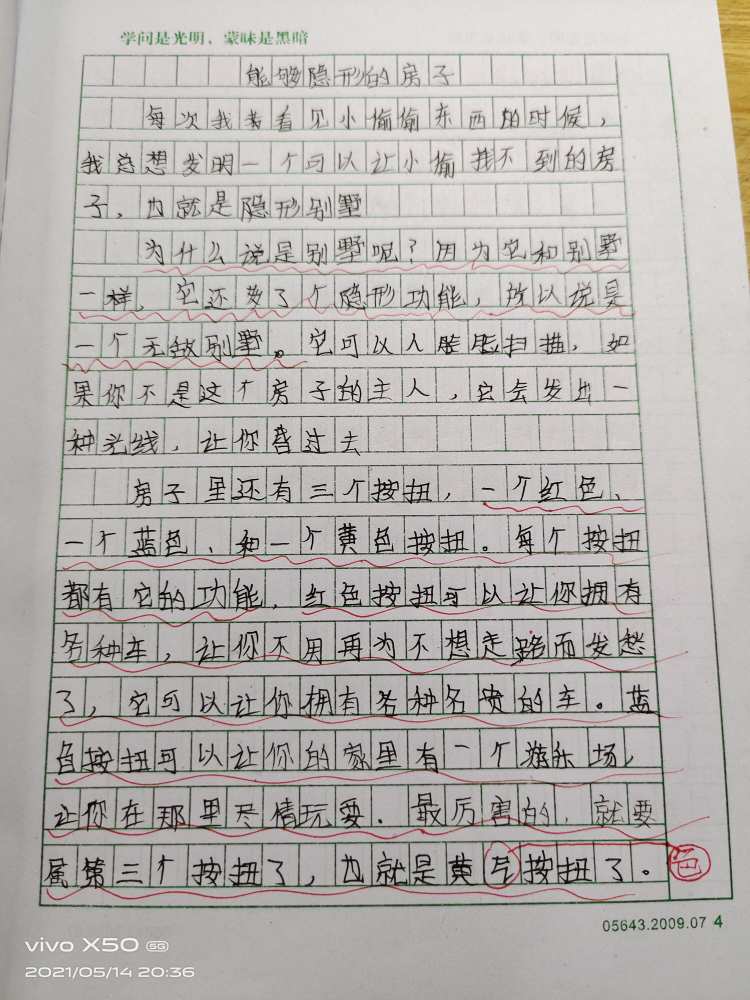 学问是光明，蒙昧是黑暗
能够隐形的房子
每次我看见小偷偷东西的时候，
我总想发明一个可以让小偷找不到的房
子，也就是隐形别墅
为什么说是别墅呢？因为它和别墅
一样，它还多了个隐形功能，所以说是
一个无敌别墅。它可以人脸扫描，如
果你不是这个房子的主人，它会发出一
种光线，让你昏过去
房子里还有三个按扭，一个红色、
一个蓝色、和一个黄色按扭。每个按扭
都有它的功能，红色按扭可以让你拥有
各种车，让你不用再为不想走路而发愁
了，它可以让你拥有各种名贵的车。蓝
色按扭可以让你的家里有一个游乐场，
让你在那里尽情玩耍．最厉害的，就要
属第三个按扭了，也就是黄按扭了。
色
05643.2009.07 4
vivo X50 5G
2021/05/14 20:36